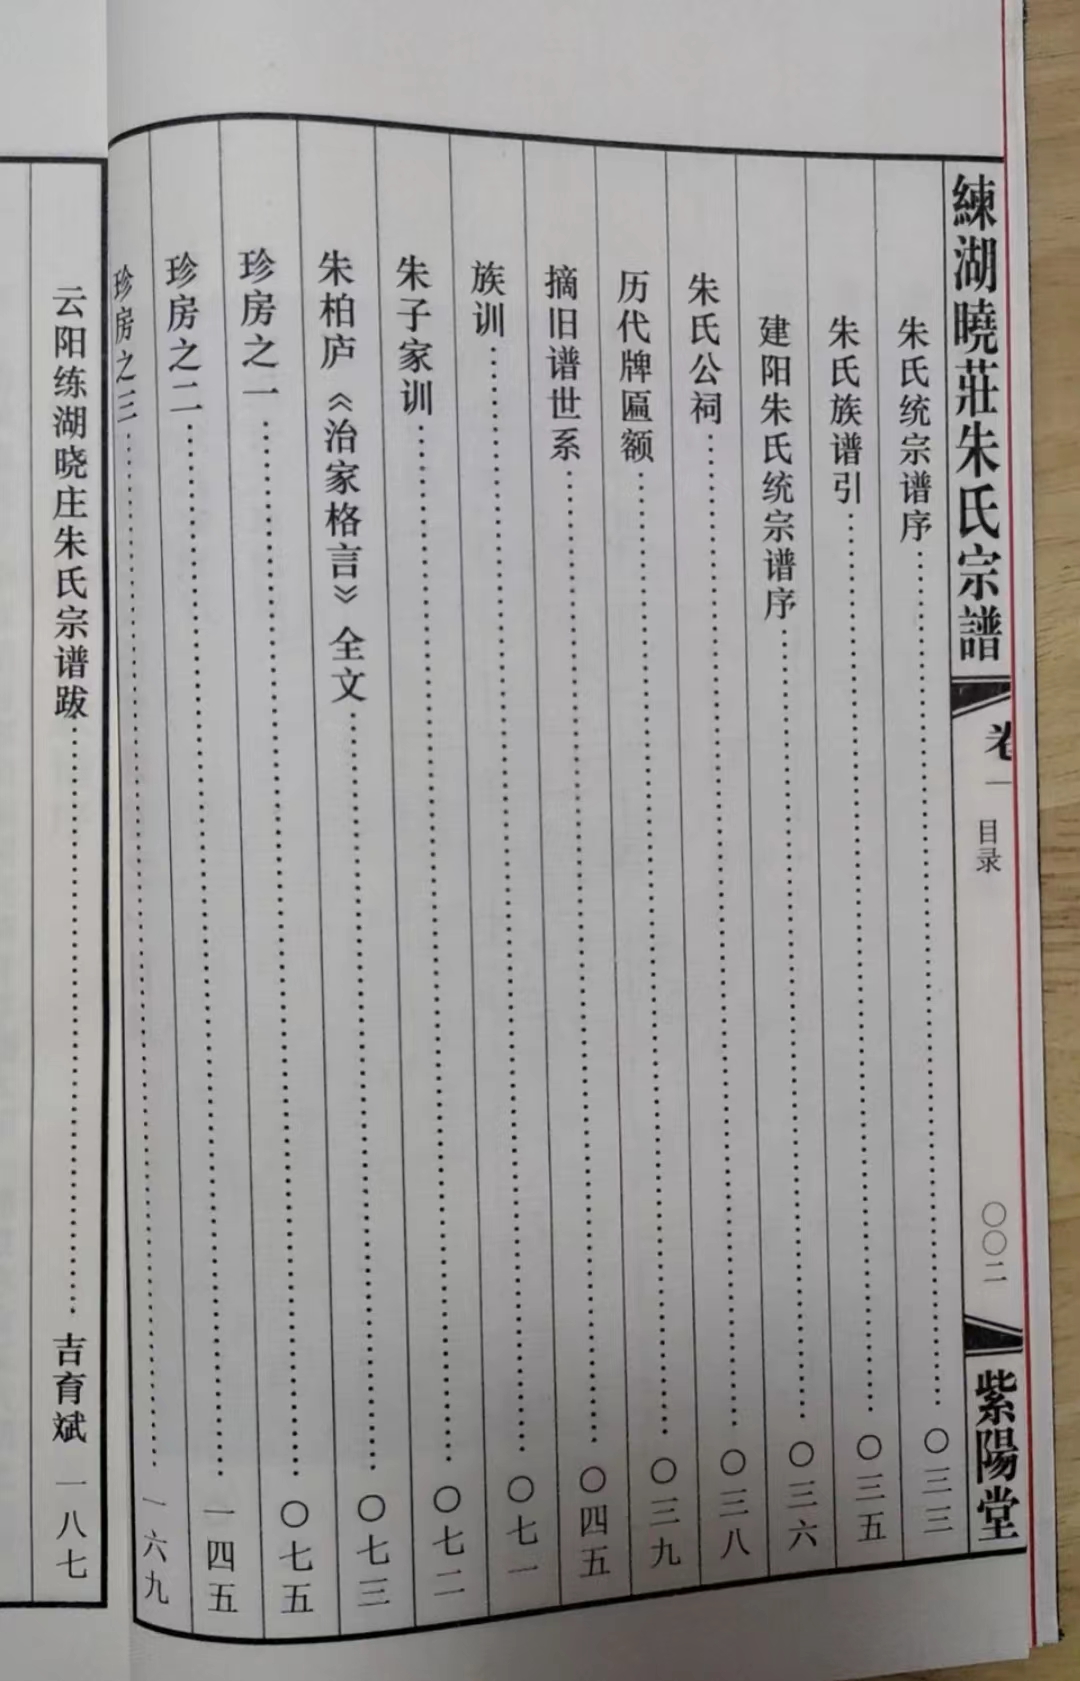 練湖曉莊朱氏宗譜 卷一 目录 〇〇二 紫陽堂
朱氏统宗谱序⋯⋯〇三三
朱氏族谱引⋯⋯〇三五
建阳朱氏统宗谱序⋯⋯〇三六
朱氏公祠⋯⋯〇三八
历代牌匾额⋯⋯〇三九
摘旧谱世系⋯⋯〇四五
族训⋯⋯〇七一
朱子家训⋯⋯〇七二
朱柏庐《治家格言》全文⋯⋯〇七三
珍房之一⋯⋯〇七五
珍房之二⋯⋯一四五
珍房之三⋯⋯一六九
云阳练湖晓庄朱氏宗谱跋⋯⋯吉育斌 一八七